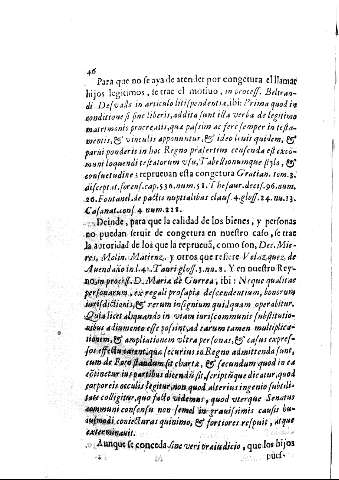 46
Para que no se aya de atender por congetura el llamar
hijos legitimos, se trae el motiuo, in process. Beltran-
di Desvalls in articulo litispendentiæ, ibi: Prima quod in
conditione si sine liberis, addita sunt illa verba de legitimo
matrimonio procreatis, quæ passim ac fere semper in testa-
mentis, & vinculis apponuntur, & ideo leuis quidem, &
parui ponderis in hoc Regno præsertim censenda est ex co-
muni loquendi testatorum vsu, Tabellionumque stylo, &
consuetudine: reprueuan esta congetura Gratian. tom. 3.
discept. st. forens. cap. 530. num. 52. Thesaur. decis. 96. num.
26. Fontanel. de pactis nuptialibus clausf. 4. gloss. 24. nu. 13.
Casanat. cons. 4 num. 212.
Deinde, para que la calidad de los bienes, y personas
no puedan seruir de congetura en nuestro caso, se trae
la autoridad de los que la reprueuã, como son, Dec. Mie-
res, Molin. Matienz. y otros que refiere Velazquez de
Auendaño in l. 42. Tauri gloss. 3. nu. 8. Y en nuestro Rey-
no, in process. D. Maria de Gurrea, ibi: Neque qualitas
personarum, ex regali prosapia descendentium, bonorum
iurisdictionis, & rerum insignium quidquam operabitur.
Quia licet aliquando in viam iuris communis substitutio-
nibus adiumento esse possint, ad earum tamen multiplica-
tionem, & ampliationem vltra personas, & casus expres-
sos effectu carent, quæ securius in Regno admittenda sunt,
cum de Foro standum sit chartæ, & secundum quod in ea
cõtinetur ius partibus dicendũ sit, scriptũque dicatur, quod
corporeis occulis legitur, non quod alterius ingenio subtili-
tate colligitur, quo facto videmus, quod vterque Senatus
communi consensu non semel in grauissimis causis hu-
iusmodi coniecturas quinimo, & fortiores respuit, atque
exterminauit.
Aunque se conceda sine veri præiudicio, que los hijos
pues-